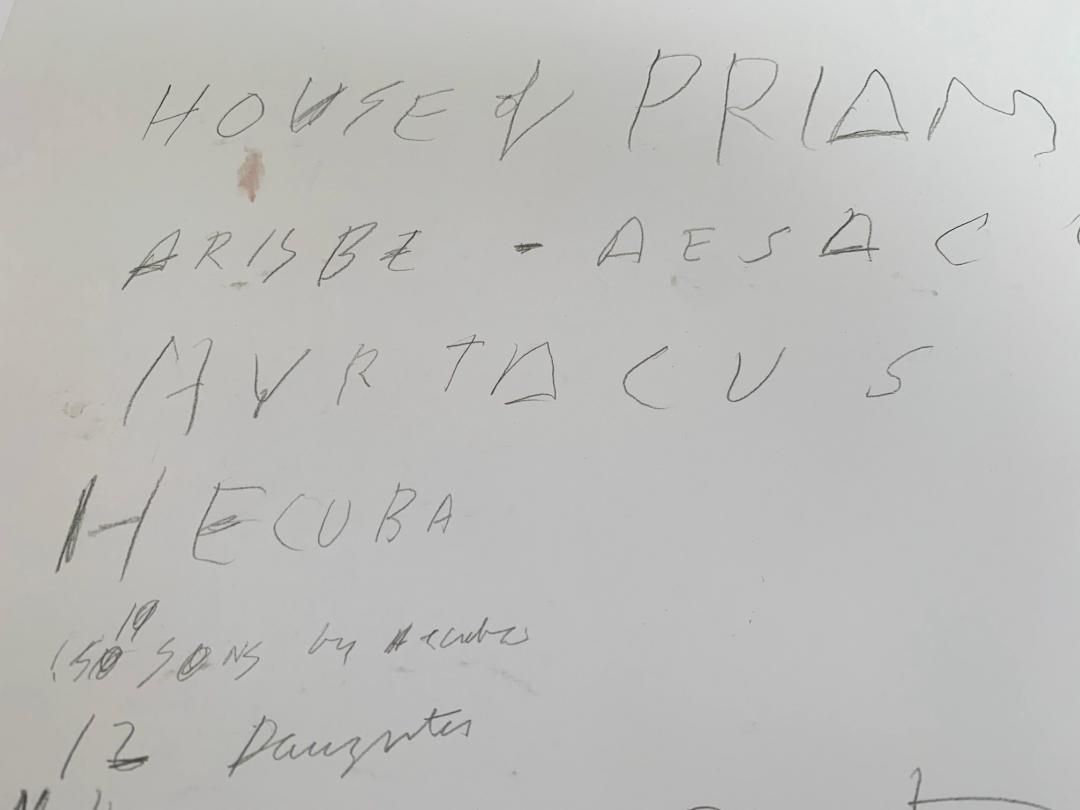 HOUSE of PRIAM
ARISBE - AESAC
HYRTACUS
HECUBA
19
50 SONS by Hecuba
12 Daughters